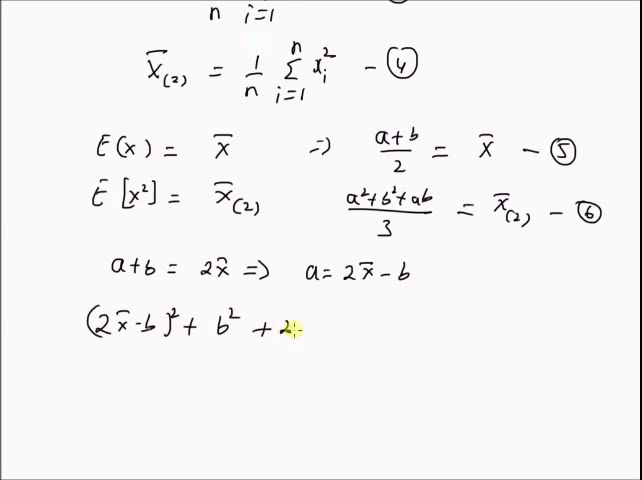 n i=1
x̄(2) = 1/n Σ(i=1 to n) xᵢ² - ④
E(x) = x̄ ⇒ (a+b)/2 = x̄ - ⑤
E[x²] = x̄(2) (a²+b²+ab)/3 = x̄(2) - ⑥
a+b = 2x̄ ⇒ a = 2x̄ - b
(2x̄-b)² + b² + 2